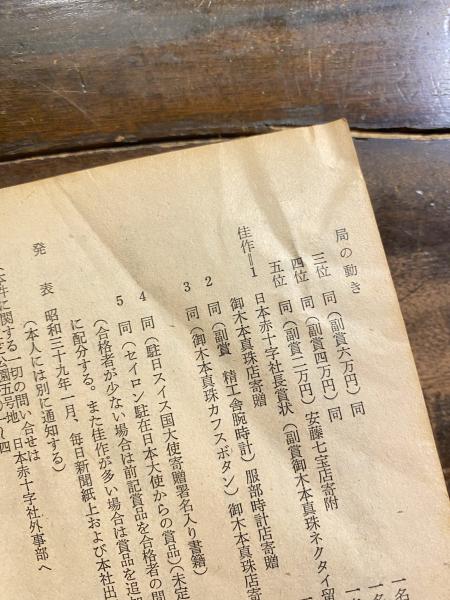 局の動き
三位 同（副賞六万円）同
四位 同（副賞四万円）同
五位 同（副賞二万円）安藤七宝店寄附
佳作＝1 日本赤十字社長賞状（副賞御木本真珠ネクタイ留
御木本真珠店寄贈
2 同（副賞 精工舎腕時計）服部時計店寄贈
3 同（御木本真珠カフスボタン）御木本真珠店寄
4 同（駐日スイス国大使寄贈署名入り書籍）
5 同（セイロン駐在日本大使からの賞品）（未定
（合格者が少ない場合は前記賞品を合格者の間
に配分する。また佳作が多い場合は賞品を追加
発 表 昭和三十九年一月、毎日新聞紙上および本社出
（本人には別に通知する）
本件に関する一切の問い合せは 日本赤十字社外事部へ
公園五号地ノ四
一名
一名